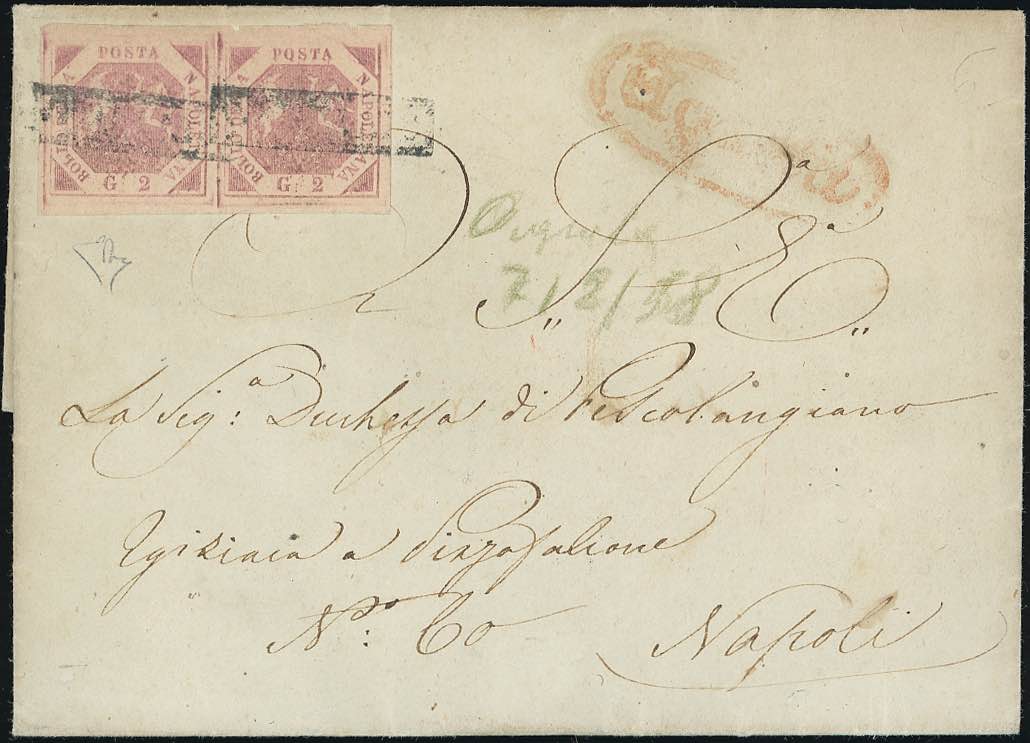 POSTA POSTA
BOLLA NAPOLETANA BOLLA NAPOLETANA
G. 2 G. 2
7/2/58
A S. E.
La Sig:a Duchessa di Pescolangiano
Egiziaca a Pizzofalcone
No: 60 Napoli